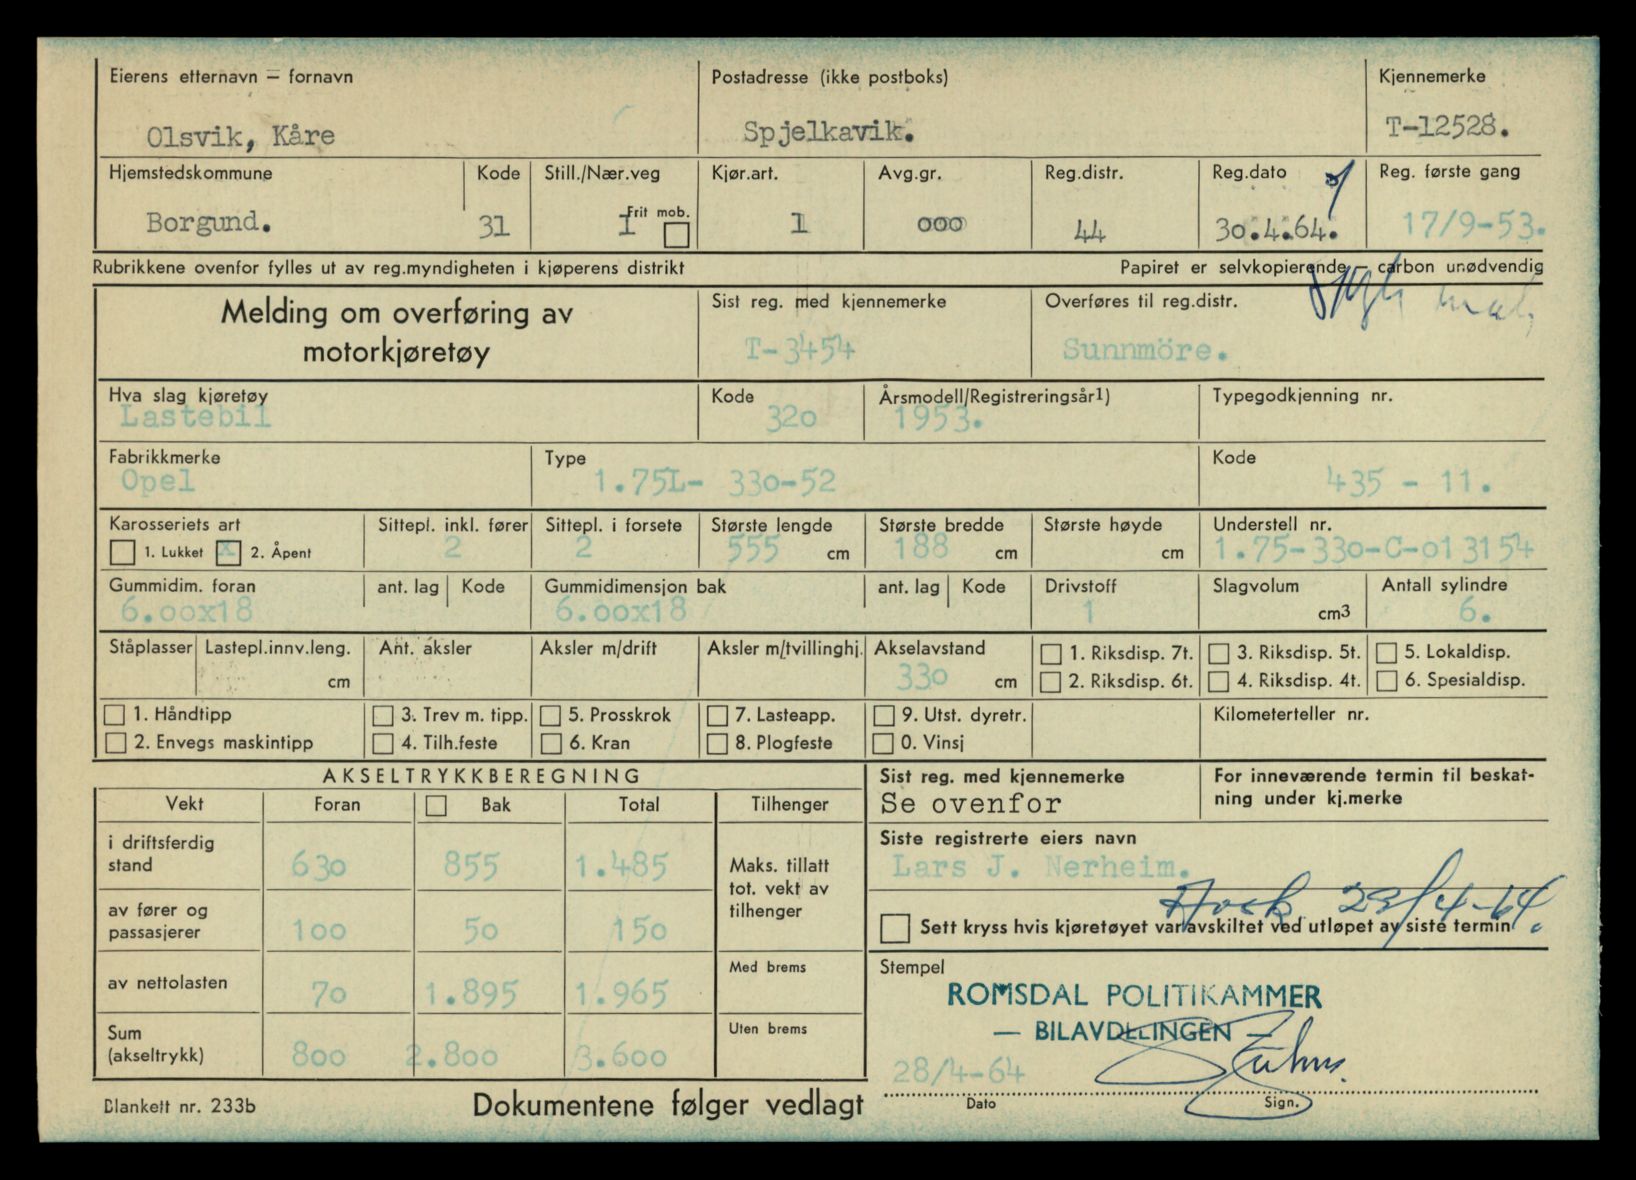 Eierens etternavn — fornavn
Postadresse (ikke postboks)
Kjennemerke
Olsvik, Kåre
Spjelkavik.
T-12528.
Hjemstedskommune
Kode
Still./Nær.veg
Kjør.art.
Avg.gr.
Reg.distr.
Reg.dato
Reg. første gang
Borgund.
31
1
Frit mob.
1
000
44
30.4.64.
17/9-53.
Rubrikkene ovenfor fylles ut av reg.myndigheten i kjøperens distrikt
Papiret er selvkopierende — carbon unødvendig
Melding om overføring av
motorkjøretøy
Sist reg. med kjennemerke
Overføres til reg.distr.
T-3454
Sunnmöre.
Hva slag kjøretøy
Kode
Årsmodell/Registreringsår1)
Typegodkjenning nr.
Lastebil
320
1953.
Fabrikkmerke
Type
Kode
Opel
1.75L- 330-52
435 - 11.
Karosseriets art
Sittepl. inkl. fører
Sittepl. i forsete
Største lengde
Største bredde
Største høyde
Understell nr.
1. Lukket
x
2. Åpent
2
2
555 cm
188 cm
cm
1.75-330-C-013154
Gummidim. foran
ant. lag
Kode
Gummidimensjon bak
ant. lag
Kode
Drivstoff
Slagvolum
Antall sylindre
6.00x18
6.00x18
1
cm3
6.
Ståplasser
Lastepl.innv.leng.
Ant. aksler
Aksler m/drift
Aksler m/tvillinghj.
Akselavstand
1. Riksdisp. 7t.
3. Riksdisp. 5t.
5. Lokaldisp.
cm
330 cm
2. Riksdisp. 6t.
4. Riksdisp. 4t.
6. Spesialdisp.
1. Håndtipp
3. Trev m. tipp.
5. Prosskrok
7. Lasteapp.
9. Utst. dyretr.
Kilometerteller nr.
2. Envegs maskintipp
4. Tilh.feste
6. Kran
8. Plogfeste
0. Vinsj
AKSELTRYKKBEREGNING
Sist reg. med kjennemerke
For inneværende termin til beskat-
ning under kj.merke
Se ovenfor
Vekt
Foran
Bak
Total
Tilhenger
i driftsferdig
stand
630
855
1.485
Maks. tillatt
tot. vekt av
tilhenger
Siste registrerte eiers navn
Lars J. Nerheim.
av fører og
passasjerer
100
50
150
23/4-64.
Sett kryss hvis kjøretøyet var avskiltet ved utløpet av siste termin
av nettolasten
70
1.895
1.965
Med brems
Stempel
ROMSDAL POLITIKAMMER
— BILAVDELINGEN
Sum
(akseltrykk)
800
2.800
3.600
Uten brems
28/4-64
Dato
Sign.
Blankett nr. 233b
Dokumentene følger vedlagt